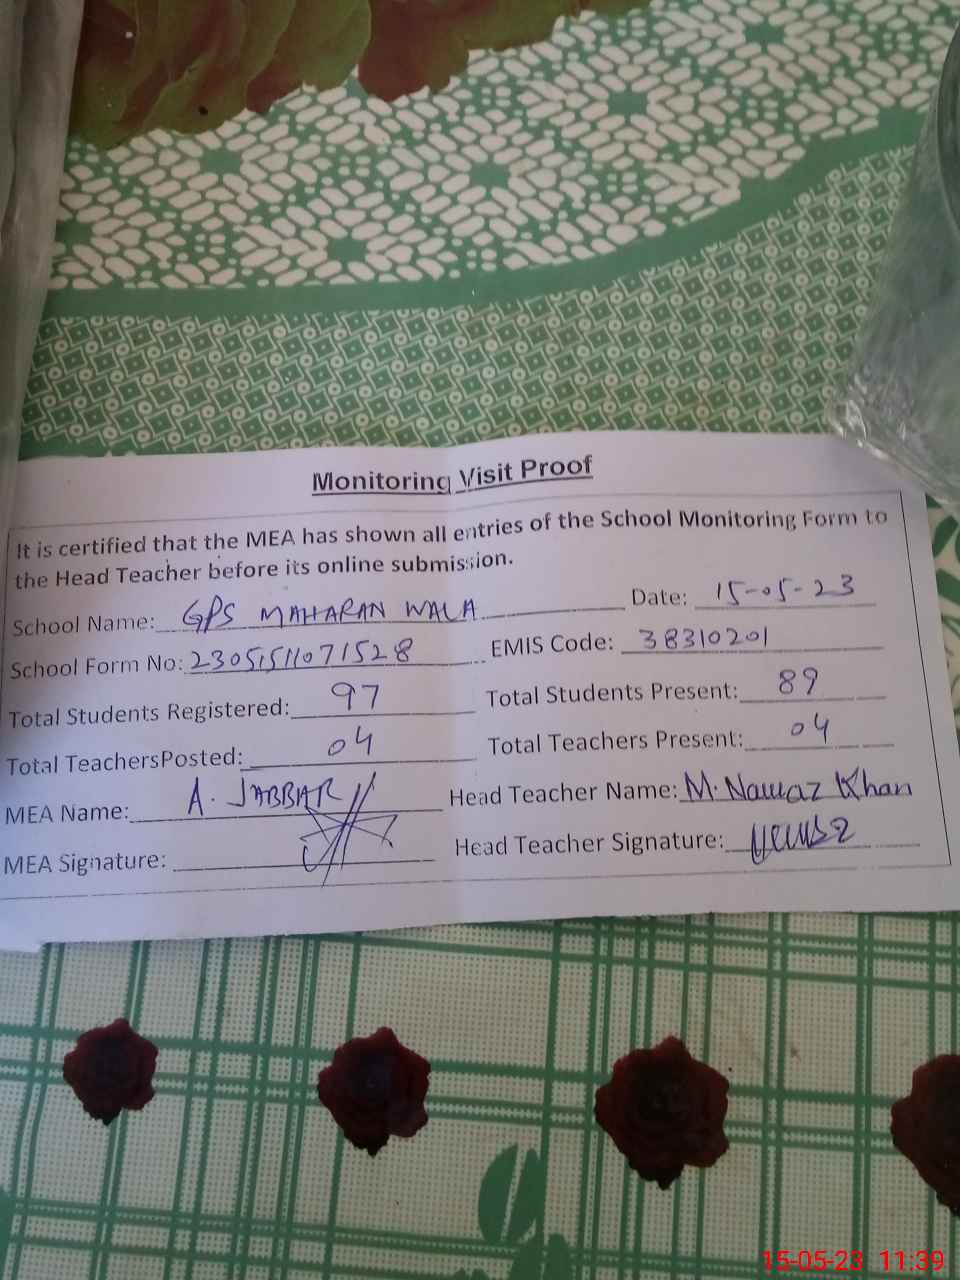 Monitoring Visit Proof
It is certified that the MEA has shown all entries of the School Monitoring Form to
the Head Teacher before its online submission.
School Name: GPS MAHARAN WALA Date: 15-05-23
School Form No: 2305151071528 EMIS Code: 38310201
Total Students Registered: 97 Total Students Present: 89
Total TeachersPosted: 04 Total Teachers Present: 04
MEA Name: A. JABBAR Head Teacher Name: M. Nawaz Khan
MEA Signature: Head Teacher Signature:
15-05-23 11:39